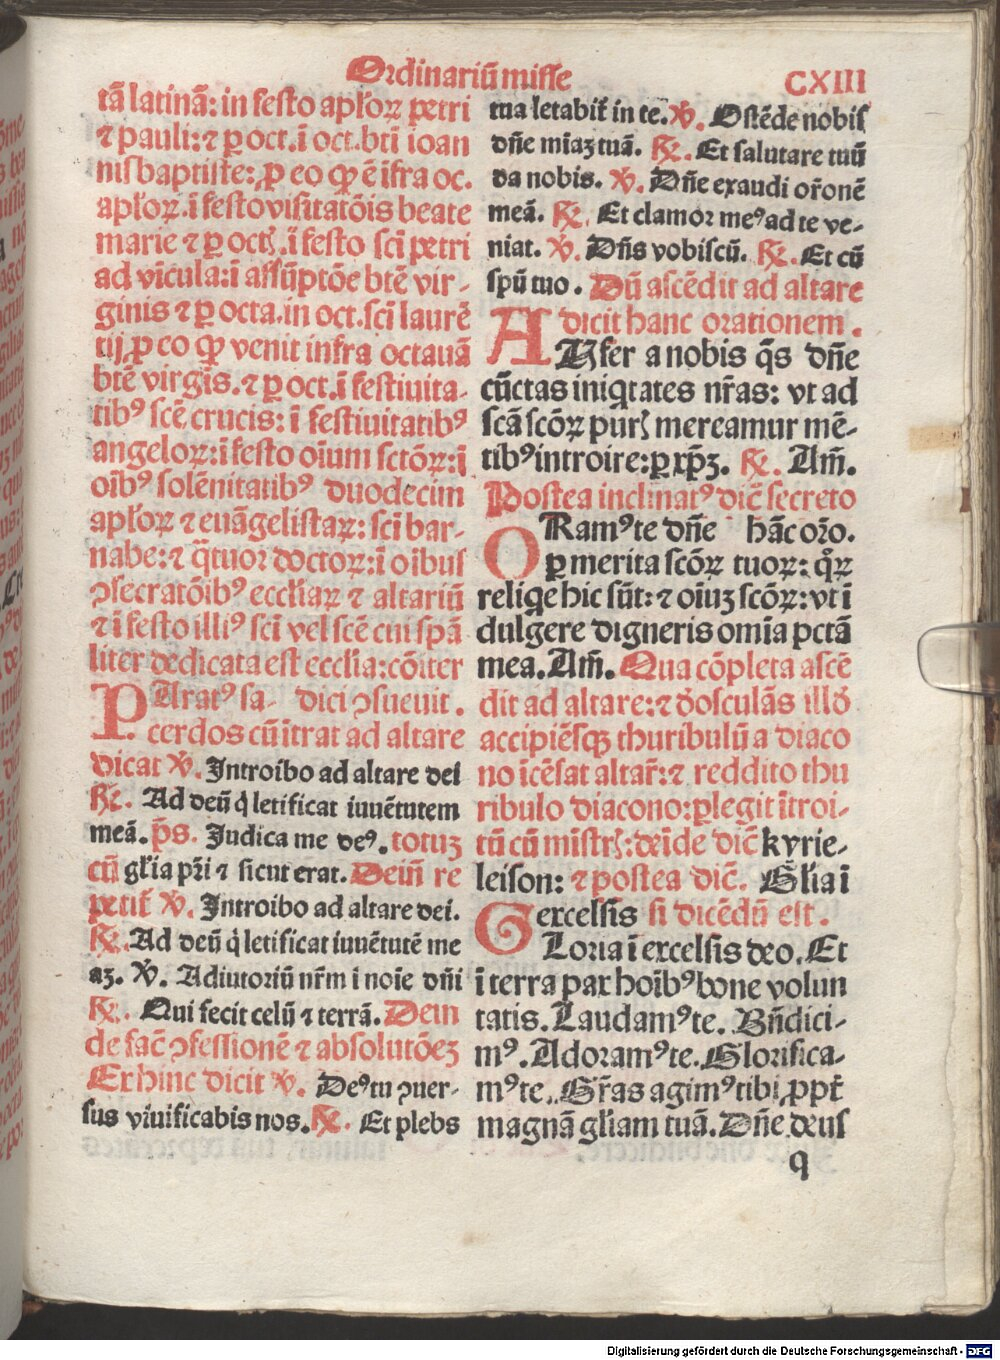 Ordinariū misse
CXIII
tā latinā: in festo apl'oꝝ petri
⁊ pauli: ⁊ ꝑ oct. ī oct. bt̄i ioan
nis baptiste: ꝓ eo ꝙ ē ifra oc.
apl'oꝝ. ī festo visitatōis beate
marie ⁊ ꝑ octꝭ. ī festo sc̄i petri
ad vīcula: ī assūptōe bt̄e vir-
ginis ⁊ ꝑ octa. in oct. sc̄i laurē
tij, ꝓ eo ꝙ venit infra octauā
bt̄e virgīs. ⁊ ꝑ oct. ī festiuita-
tibꝰ sc̄e crucis: ī festiuitatibꝰ
angeloꝝ: ī festo oīum sctōꝝ: ī
oībꝰ solēnitatibꝰ duodecim
apl'oꝝ ⁊ euāgelistaꝝ: sc̄i bar-
nabe: ⁊ q̄tuor doctoꝝ: ī oībus
ꝯsecratōibꝰ eccl'iaꝝ ⁊ altariū
⁊ ī festo illiꝰ sc̄i vel sc̄e cui spā
liter dedicata est eccl'ia: cōiter
PAratꝰ sa- dici ꝯsueuit.
cerdos cū itrat ad altare
dicat ℣. Introibo ad altare dei
℟. Ad deū q̇ letificat iuuētutem
meā. p̄s. Iudica me deꝰ. totuꝫ
cū gl'ia pr̄i ⁊ sicut erat. Dein̄ re
petit̄ ℣. Introibo ad altare dei.
℟. Ad deū q̇ letificat iuuētutē me
aꝫ. ℣. Adiutoriū nr̄m i noīe dn̄i
℟. Qui fecit celū ⁊ terrā. Dein
de fac̄ ꝯfessionē ⁊ absolutōeꝫ
Ex hinc dicit ℣. Deꝰ tu ꝯuer-
sus viuificabis nos. ℟. Et plebs
tua letabit̄ in te. ℣. Ostēde nobis
dn̄e miaꝫ tuā. ℟. Et salutare tuū
da nobis. ℣. Dn̄e exaudi or̄onē
meā. ℟. Et clamor meꝰ ad te ve-
niat. ℣. Dn̄s vobiscū. ℟. Et cū
spū tuo. Dū ascēdit ad altare
dicit hanc orationem.
AUfer a nobis q̄s dn̄e
cūctas iniq̇tates nr̄as: vt ad
scā scōꝝ purꝭ mereamur mē-
tibꝰ introire: ꝑ xp̄ꝫ. ℟. Am̄.
Postea inclinatꝰ dic̄ secreto
ORamꝰ te dn̄e hāc or̄o.
ꝑ merita scōꝝ tuoꝝ: qͦꝝ
reliq̇e hic sūt: ⁊ oīuꝫ scōꝝ: vt ī
dulgere digneris omīa pctā
mea. Am̄. Qua cōpleta ascē
dit ad altare: ⁊ d'osculās illd'
accipiēsqꝫ thuribulū a diaco
no īcēsat altar̄: ⁊ reddito thu
ribulo diacono: ꝑlegit ītroi-
tū cū mistrꝭ: deīde dic̄ kyrie-
leison: ⁊ postea dic̄. Gl'ia ī
excelsis si dicēdū est.
GLoria ī excelsis deo. Et
ī terra pax hoībꝰ bone volun
tatis. Laudamꝰ te. Bn̄dici-
mꝰ. Adoramꝰ te. Glorifica-
mꝰ te. Gr̄as agimꝰ tibi ꝓpt̄
magnā gl'iam tuā. Dn̄e deus
q
Digitalisierung gefördert durch die Deutsche Forschungsgemeinschaft - DFG